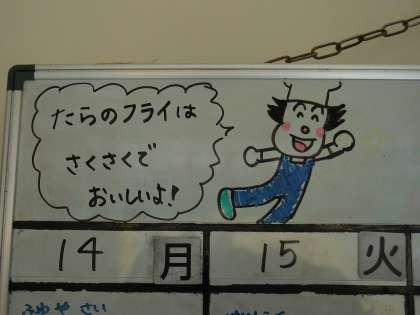 たらのフライは
さくさくで
おいしいよ!
14 月 15 火
ふゆやさい